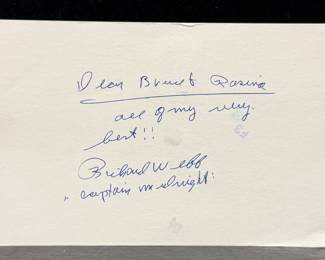 Dear Bruce & Rosina
all of my very
best!!
Richard Webb
"Captain Midnight"